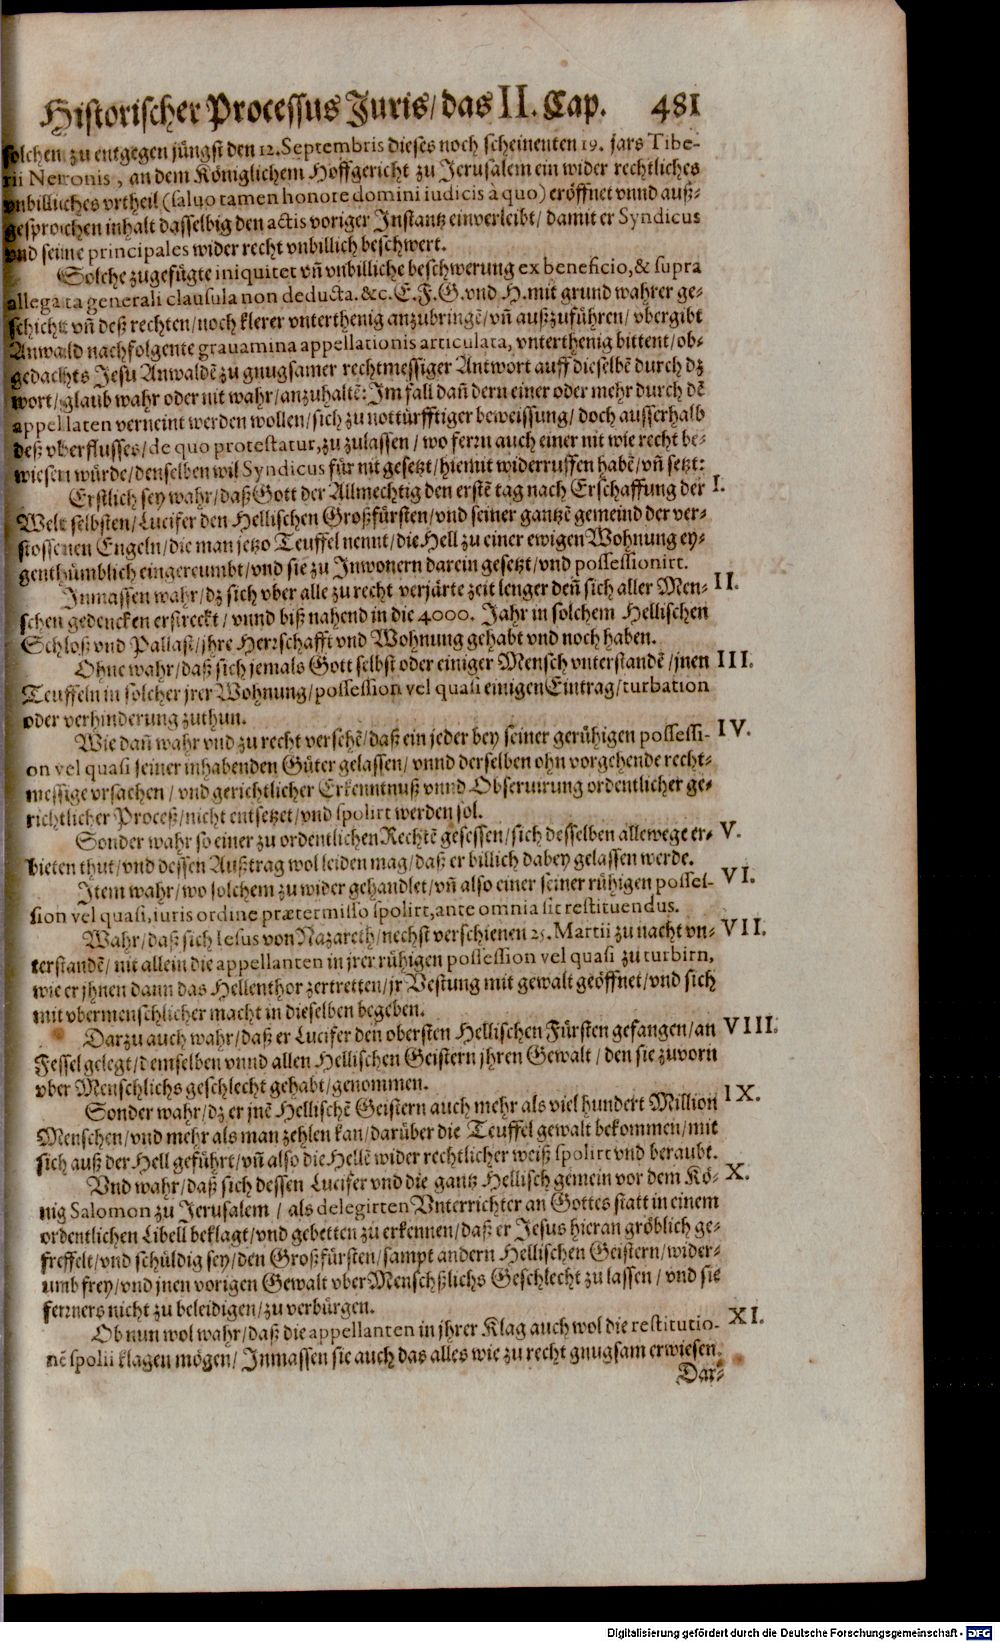 Historischer Processus Juris/ das II. Cap. 481
solchen zu entgegen jüngst den 12. Septembris dieses noch scheinenten 19. jars Tibe-
rii Neronis, an dem Königlichem Hoffgericht zu Jerusalem ein wider rechtliches
vnbilliches vrtheil (saluo tamen honore domini iudicis à quo) eröffnet vnnd auß-
gesprochen inhalt dasselbig den actis voriger Instantz einverleibt/ damit er Syndicus
vnd seine principales wider recht vnbillich beschwert.
Solche zugefügte iniquitet vñ vnbilliche beschwerung ex beneficio, & supra
allegata generali clausula non deducta. &c. E. F. G. vnd H. mit grund wahrer ge-
schicht vñ deß rechten/ noch klerer vnterthenig anzubringẽ/ vñ außzuführen/ vbergibt
Anwald nachfolgente grauamina appellationis articulata, vnterthenig bittent/ ob-
gedachts Jesu Anwaldẽ zu gnugsamer rechtmessiger Antwort auff dieselbẽ durch dz
wort/ glaub wahr oder nit wahr/ anzuhaltẽ: Im fall dañ dern einer oder mehr durch dẽ
appellaten verneint werden wollen/ sich zu nottürfftiger beweissung/ doch ausserhalb
deß vberflusses/ de quo protestatur, zu zulassen/ wo fern auch einer nit wie recht be-
wiesen würde/ denselben wil Syndicus für nit gesetzt/ hiemit widerruffen habẽ/ vñ setzt:
Erstlich sey wahr/ daß Gott der Allmechtig den erstẽ tag nach Erschaffung der I.
Welt selbsten/ Lucifer den Hellischen Großfürsten/ vnd seiner gantzẽ gemeind der ver-
stossenen Engeln/ die man jetzo Teuffel nennt/ die Hell zu einer ewigen Wohnung ey-
genthümblich eingereumbt/ vnd sie zu Inwonern darein gesetzt/ vnd possessionirt.
Inmassen wahr/ dz sich vber alle zu recht verjärte zeit lenger deñ sich aller Men- II.
schen gedencken erstreckt/ vnnd biß nahend in die 4000. Jahr in solchem Hellischen
Schloß vnd Pallast/ jhre Herrschafft vnd Wohnung gehabt vnd noch haben.
Ohne wahr/ daß sich jemals Gott selbst oder einiger Mensch vnterstandẽ/ jnen III.
Teuffeln in solcher jrer Wohnung/ possession vel quasi einigen Eintrag/ turbation
oder verhinderung zuthun.
Wie dañ wahr vnd zu recht versehẽ/ daß ein jeder bey seiner gerühigen possessi- IV.
on vel quasi seiner inhabenden Güter gelassen/ vnnd derselben ohn vorgehende recht-
messige vrsachen/ vnd gerichtlicher Erkenntnuß vnnd Obseruirung ordentlicher ge-
richtlicher Proceß/ nicht entsetzet/ vnd spolirt werden sol.
Sonder wahr so einer zu ordentlichen Rechtẽ gesessen/ sich desselben allewege er- V.
bieten thut/ vnd dessen Außtrag wol leiden mag/ daß er billich dabey gelassen werde.
Item wahr/ wo solchem zu wider gehandlet/ vñ also einer seiner rühigen posses- VI.
sion vel quasi, iuris ordine prætermisso spolirt, ante omnia sit restituendus.
Wahr/ daß sich Iesus von Nazareth/ nechst verschienen 25. Martii zu nacht vn- VII.
terstandẽ/ nit allein die appellanten in jrer rühigen possession vel quasi zu turbirn,
wie er jhnen dann das Hellenthor zertretten/ jr Vestung mit gewalt geöffnet/ vnd sich
mit vbermenschlicher macht in dieselben begeben.
Darzu auch wahr/ daß er Lucifer den obersten Hellischen Fürsten gefangen/ an VIII.
Fessel gelegt/ demselben vnnd allen Hellischen Geistern jhren Gewalt/ den sie zuvorn
vber Menschlichs geschlecht gehabt/ genommen.
Sonder wahr/ dz er jnẽ Hellischẽ Geistern auch mehr als viel hundert Million IX.
Menschen/ vnd mehr als man zehlen kan/ darüber die Teuffel gewalt bekommen/ mit
sich auß der Hell geführt/ vñ also die Hellẽ wider rechtlicher weiß spolirt vnd beraubt.
Vnd wahr/ daß sich dessen Lucifer vnd die gantz Hellisch gemein vor dem Kö- X.
nig Salomon zu Jerusalem/ als delegirten Vnterrichter an Gottes statt in einem
ordentlichen Libell beklagt/ vnd gebetten zu erkennen/ daß er Jesus hieran gröblich ge-
freffelt/ vnd schüldig sey/ den Großfürsten/ sampt andern Hellischen Geistern/ wider-
umb frey/ vnd jnen vorigen Gewalt vber Menschßlichs Geschlecht zu lassen/ vnd sie
ferrners nicht zu beleidigen/ zu verbürgen.
Ob nun wol wahr/ daß die appellanten in jhrer Klag auch wol die restitutio- XI.
nẽ spolii klagen mögen/ Inmassen sie auch das alles wie zu recht gnugsam erwiesen.
Dar-
Digitalisierung gefördert durch die Deutsche Forschungsgemeinschaft - DFG